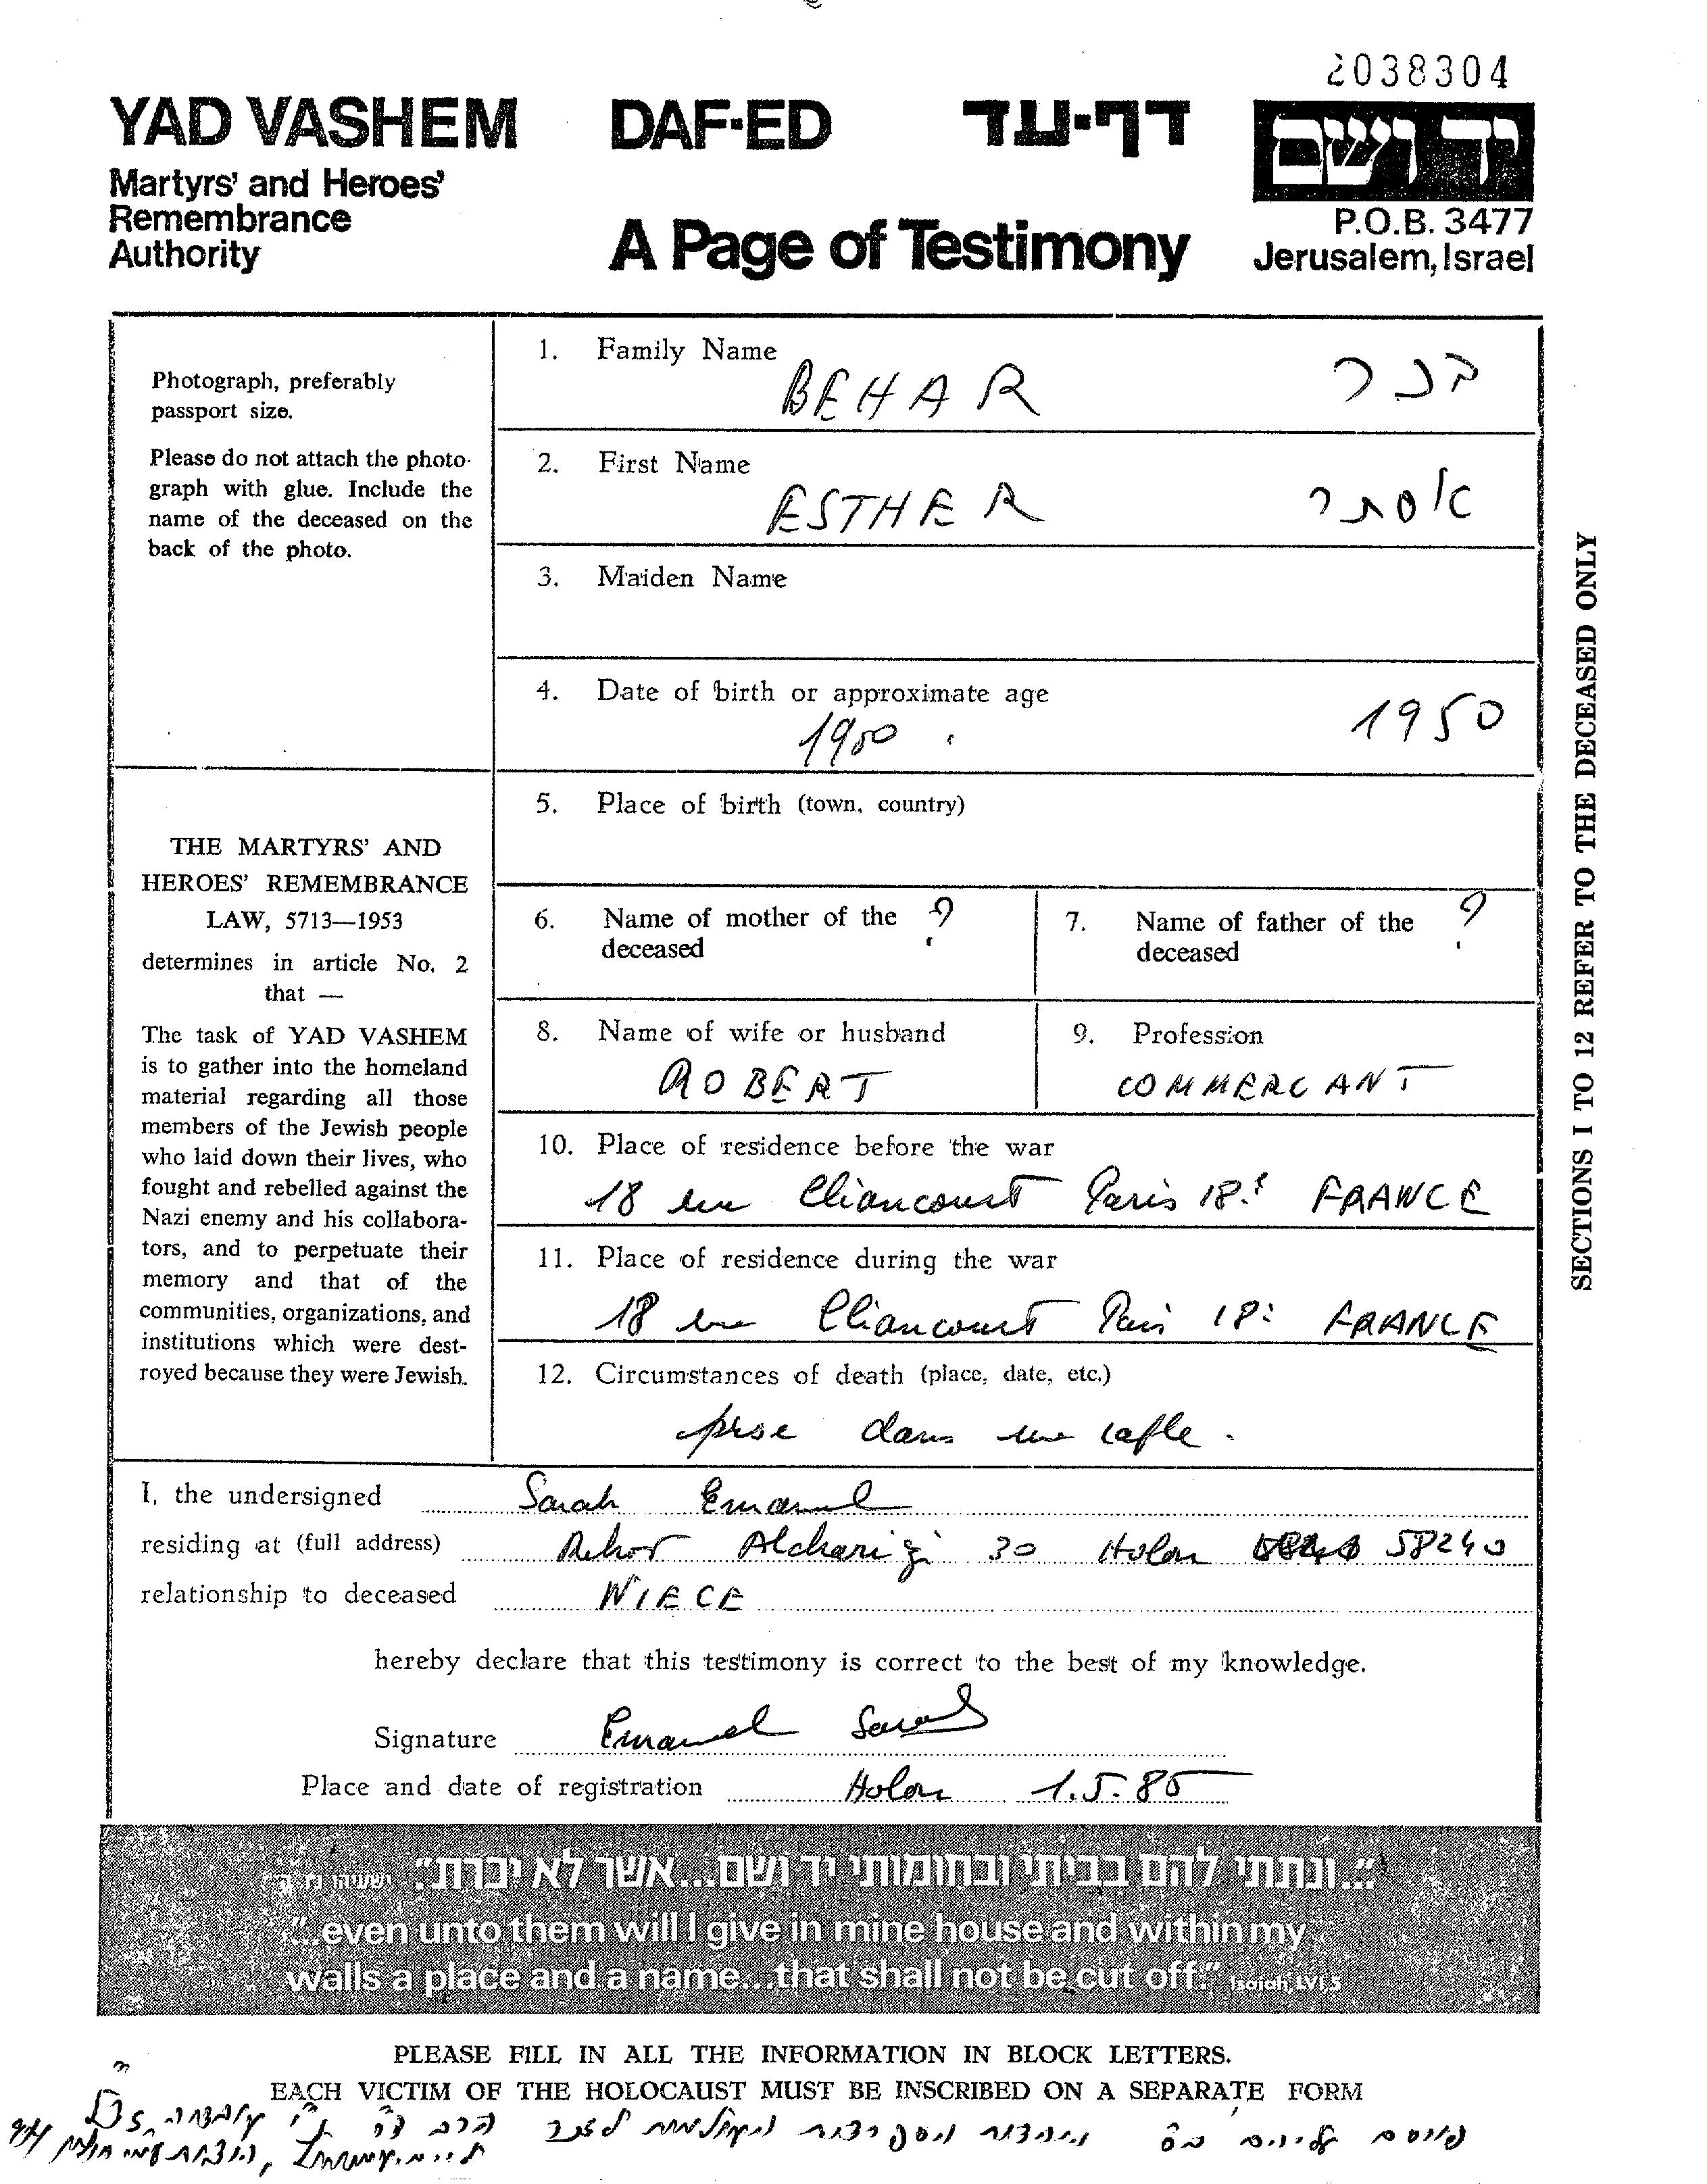 2038304
YAD VASHEM DAF-ED דף-עד יד ושם
Martyrs' and Heroes'
Remembrance
Authority
A Page of Testimony
P.O.B. 3477
Jerusalem, Israel
Photograph, preferably
passport size.
Please do not attach the photo-
graph with glue. Include the
name of the deceased on the
back of the photo.
THE MARTYRS' AND
HEROES' REMEMBRANCE
LAW, 5713—1953
determines in article No. 2
that —
The task of YAD VASHEM
is to gather into the homeland
material regarding all those
members of the Jewish people
who laid down their lives, who
fought and rebelled against the
Nazi enemy and his collabora-
tors, and to perpetuate their
memory and that of the
communities, organizations, and
institutions which were dest-
royed because they were Jewish.
1. Family Name
BEHAR בכר
2. First Name
ESTHER אסתר
3. Maiden Name
4. Date of birth or approximate age
1900 1950
5. Place of birth (town, country)
6. Name of mother of the ?
deceased
7. Name of father of the ?
deceased
8. Name of wife or husband
ROBERT
9. Profession
COMMERCANT
10. Place of residence before the war
18 rue Cliancourt Paris 18e FRANCE
11. Place of residence during the war
18 rue Cliancourt Paris 18e FRANCE
12. Circumstances of death (place, date, etc.)
prise dans une rafle.
SECTIONS 1 TO 12 REFER TO THE DECEASED ONLY
I, the undersigned Sarah Emanuel
residing at (full address) Rehov Alcharizi 30 Holon 58240
relationship to deceased NIECE
hereby declare that this testimony is correct to the best of my knowledge.
Signature Emanuel Sarah
Place and date of registration Holon 1.5.85
"...ונתתי להם בביתי ובחומותי יד ושם...אשר לא יכרת". ישעיהו נו, ה
"...even unto them will I give in mine house and within my
walls a place and a name...that shall not be cut off." Isaiah, LVI,5
PLEASE FILL IN ALL THE INFORMATION IN BLOCK LETTERS.
EACH VICTIM OF THE HOLOCAUST MUST BE INSCRIBED ON A SEPARATE FORM